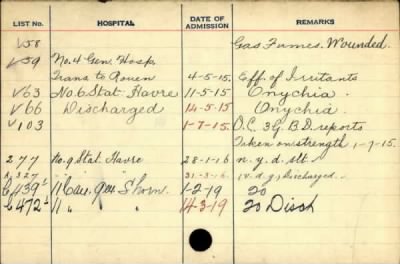 LIST No. HOSPITAL DATE OF ADMISSION REMARKS
V58 Gas Fumes. Wounded.
V59 No. 4 Gen. Hosp.
Trans to Rouen 4-5-15. Eff. of Irritants
V63 No. 6 Stat. Havre 11-5-15 Onychia.
V66 Discharged 14.5.15 Onychia.
V103 1-7-15. O.C. 3 G.B.D. reports
Taken on strength 1-7-15.
277 No. 9 Stat. Havre 28-1-16 n.y.d. slt.
327 " " " 31-3-16. (v.d.g.) Discharged.
C439 11 Can. Gen. Shorn. 1-2-19 do
C472 11 " 14-3-19 do Disch